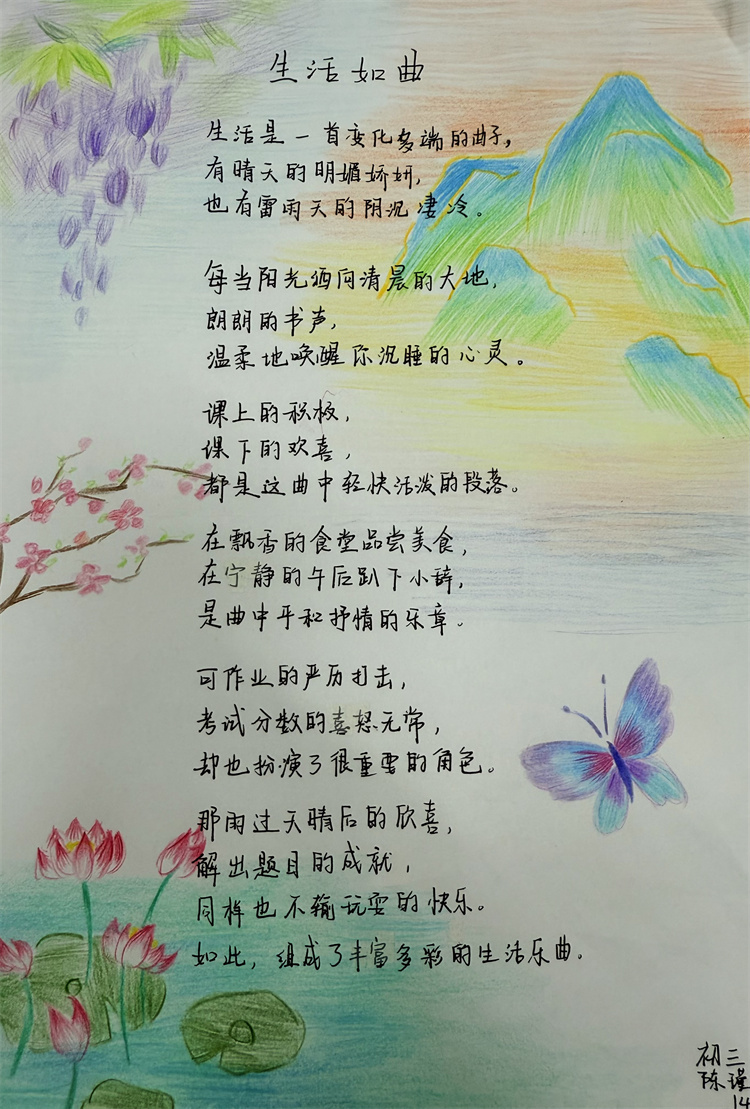 生活如曲
生活是一首变化多端的曲子,
有晴天的明媚娇妍,
也有雷雨天的阴沉凄冷。
每当阳光洒向清晨的大地,
朗朗的书声,
温柔地唤醒你沉睡的心灵。
课上的积极,
课下的欢喜,
都是这曲中轻快活泼的段落。
在飘香的食堂品尝美食,
在宁静的午后趴下小辞,
是曲中平和抒情的乐章。
可作业的严厉打击,
考试分数的喜怒无常,
却也扮演了很重要的角色。
那雨过天晴后的欣喜,
解出题目的成就,
同样也不输玩耍的快乐。
如此,组成了丰富多彩的生活乐曲。
初三
陈瑾
14